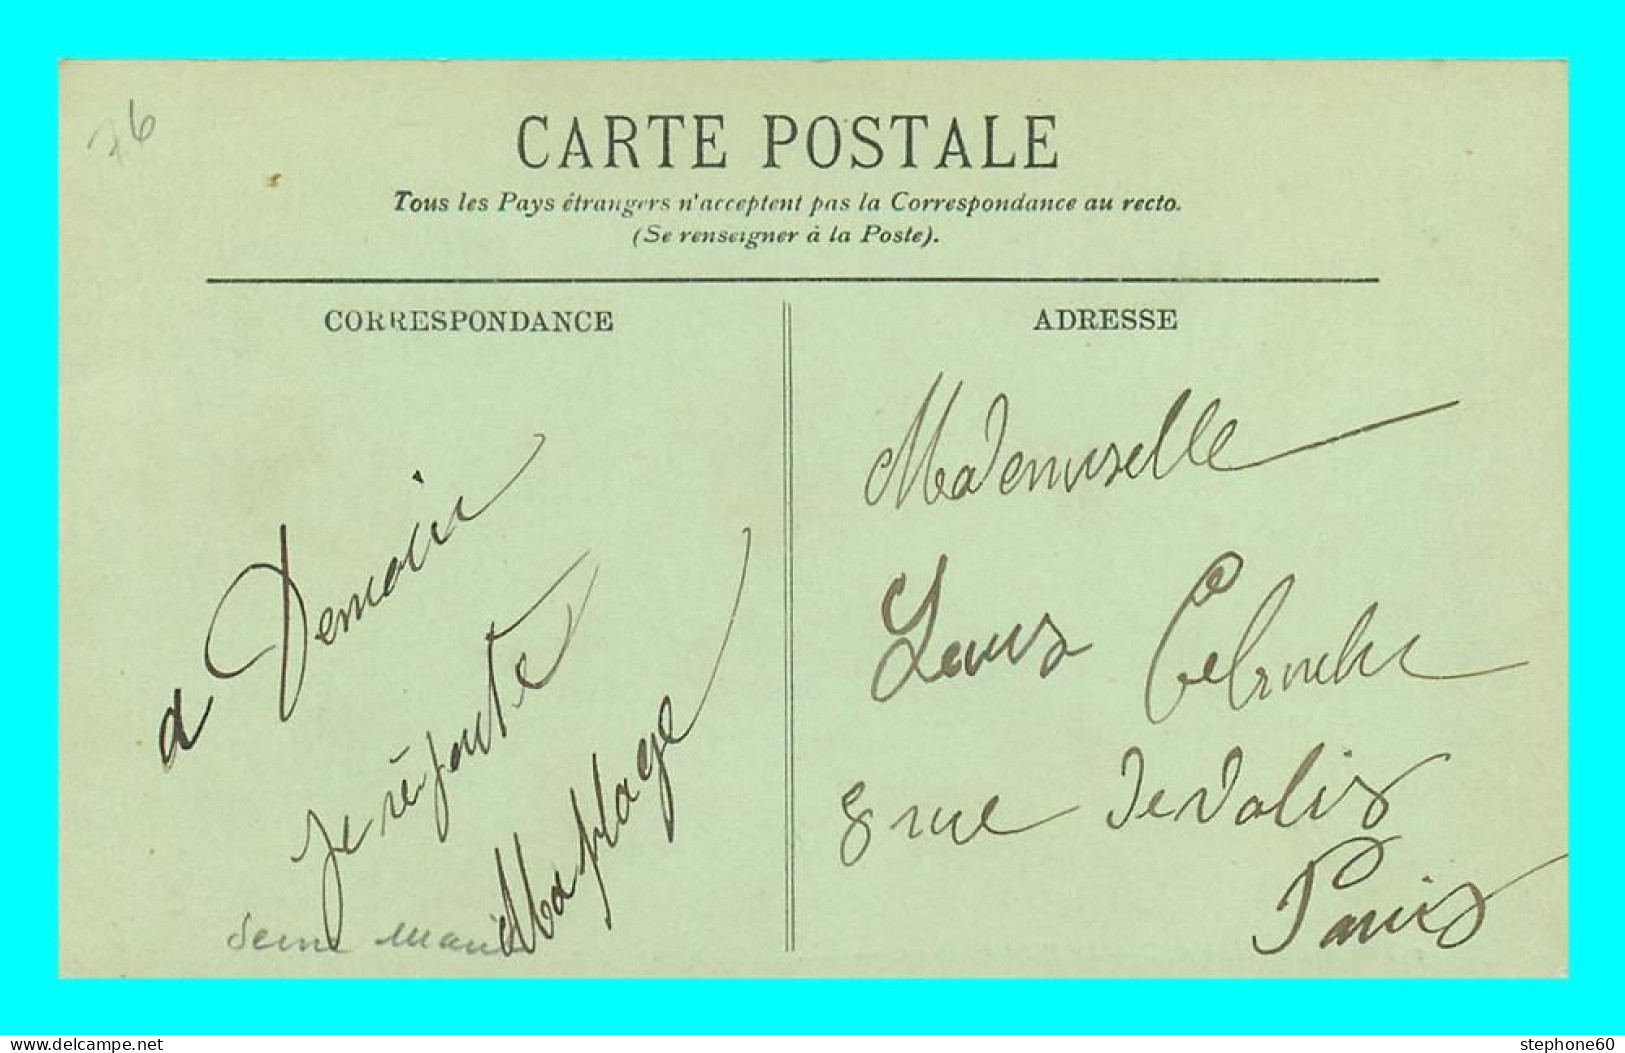 76
CARTE POSTALE
Tous les Pays étrangers n'acceptent pas la Correspondance au recto.
(Se renseigner à la Poste).
CORRESPONDANCE
a Demain
je
Ma plage
Seine
ADRESSE
Mademoiselle
8 rue de Valis
Paris
delcampe.net
stephone60